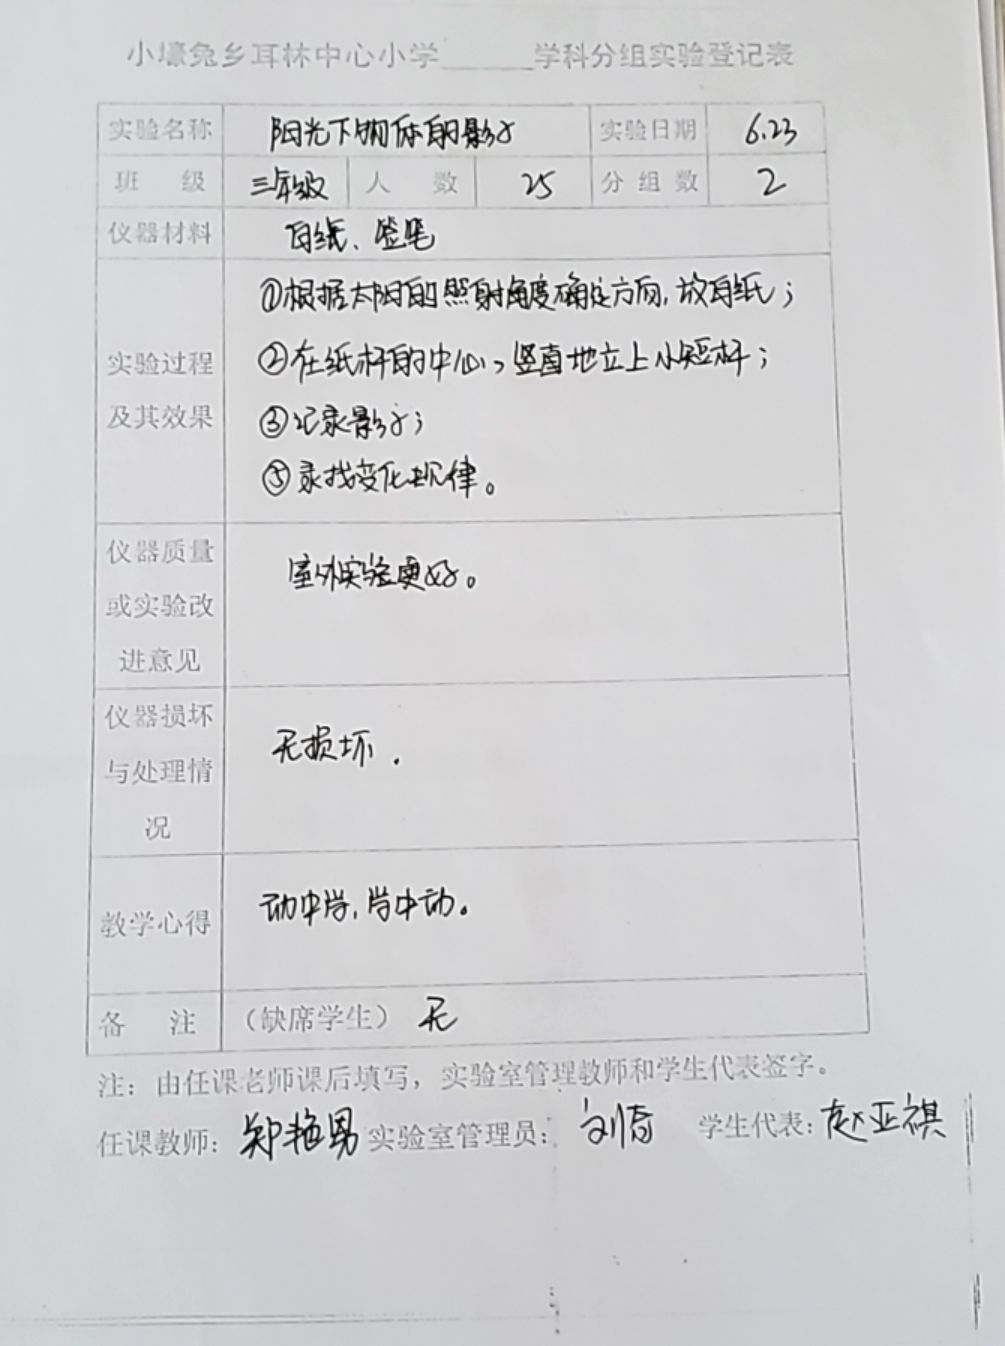 小壕兔乡耳林中心小学______学科分组实验登记表
实验名称 阳光下物体的影子 实验日期 6.23
班 级 三年级 人 数 25 分组数 2
仪器材料 白纸、签笔
实验过程及其效果
①根据太阳的照射角度确定方向,放白纸;
②在纸杆的中心,竖直地立上小短杆;
③记录影子;
⑤录找变化规律。
仪器质量或实验改进意见
室外实验更好。
仪器损坏与处理情况
无损坏.
教学心得
动中学,学中动。
备 注 (缺席学生) 无
注:由任课老师课后填写,实验室管理教师和学生代表签字。
任课教师:郑艳男 实验室管理员:刘 学生代表:赵亚祺